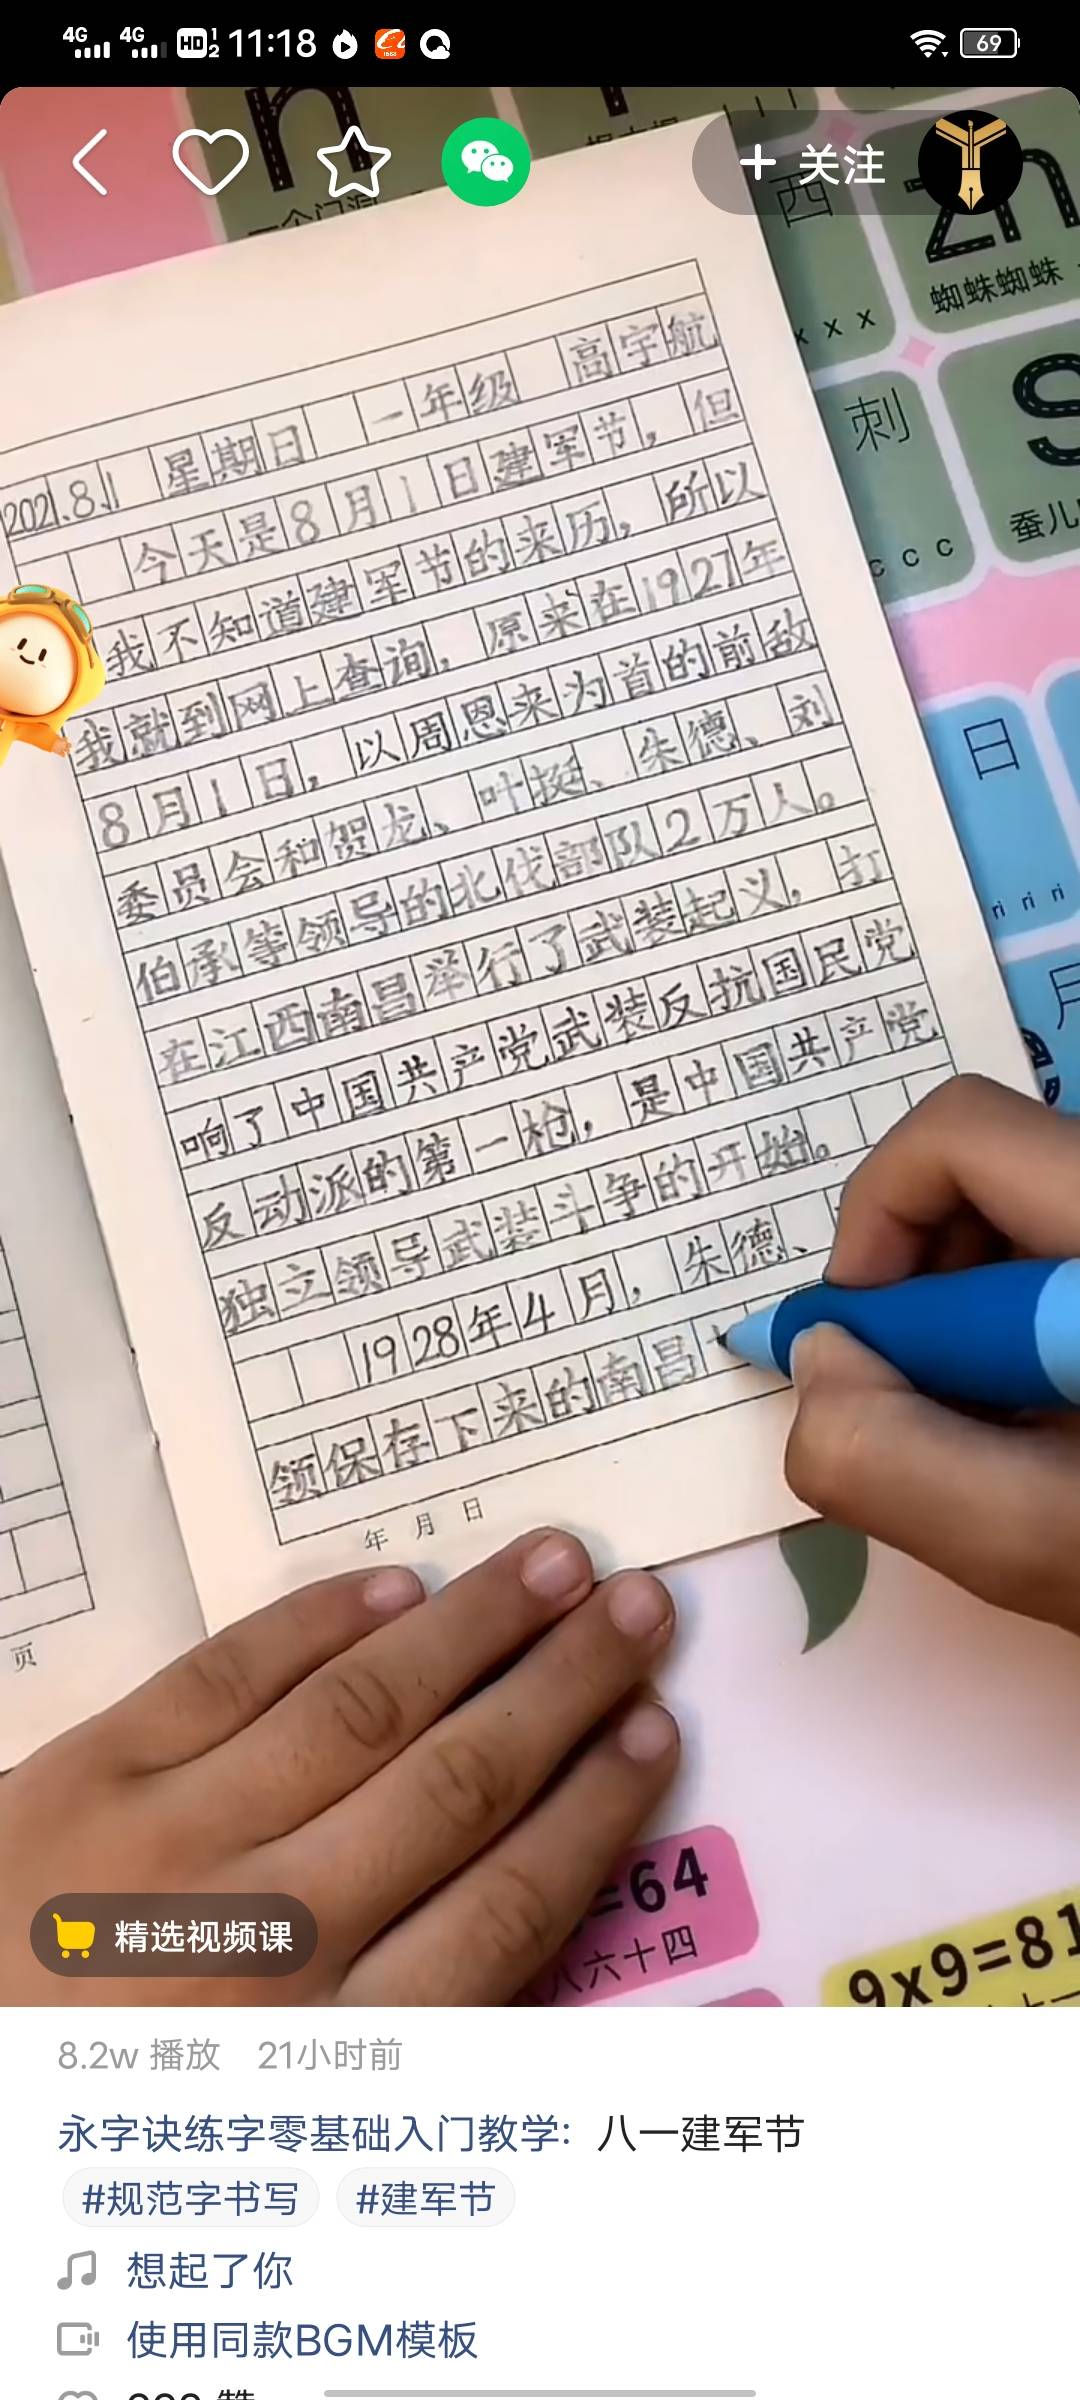 4G 4G HD 1 2 11:18 69
+ 关注
西
x x x
蜘蛛蜘蛛
刺
c c c
蚕儿
日
ri ri ri
2021.8.1 星期日 一年级 高宇航
今天是8月1日建军节，但
我不知道建军节的来历，所以
我就到网上查询，原来在1927年
8月1日，以周恩来为首的前敌
委员会和贺龙、叶挺、朱德、刘
伯承等领导的北伐部队2万人。
在江西南昌举行了武装起义，打
响了中国共产党武装反抗国民党
反动派的第一枪，是中国共产党
独立领导武装斗争的开始。
1928年4月，朱德、
领保存下来的南昌
年 月 日
页
=64
八六十四
9x9=81
精选视频课
8.2w 播放 21小时前
永字诀练字零基础入门教学：八一建军节
#规范字书写 #建军节
想起了你
使用同款BGM模板